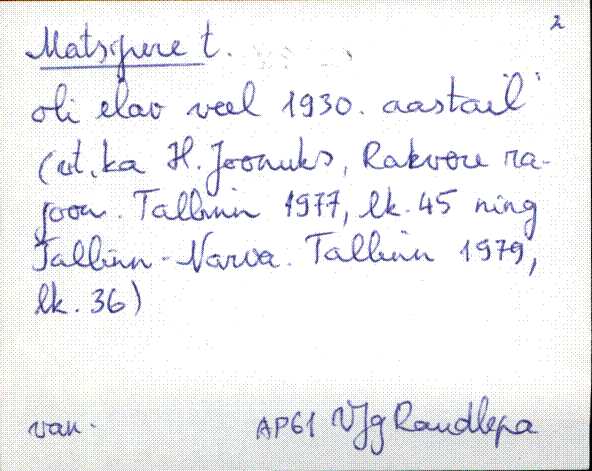 2
Matsipere t.
oli elav veel 1930. aastail
(vt. ka H. Joonuks, Rakvere ra-
joon. Tallinn 1977, lk. 45 ning
Tallinn-Narva. Tallinn 1979,
lk. 36)
van.
AP61 VJg Raudlepa